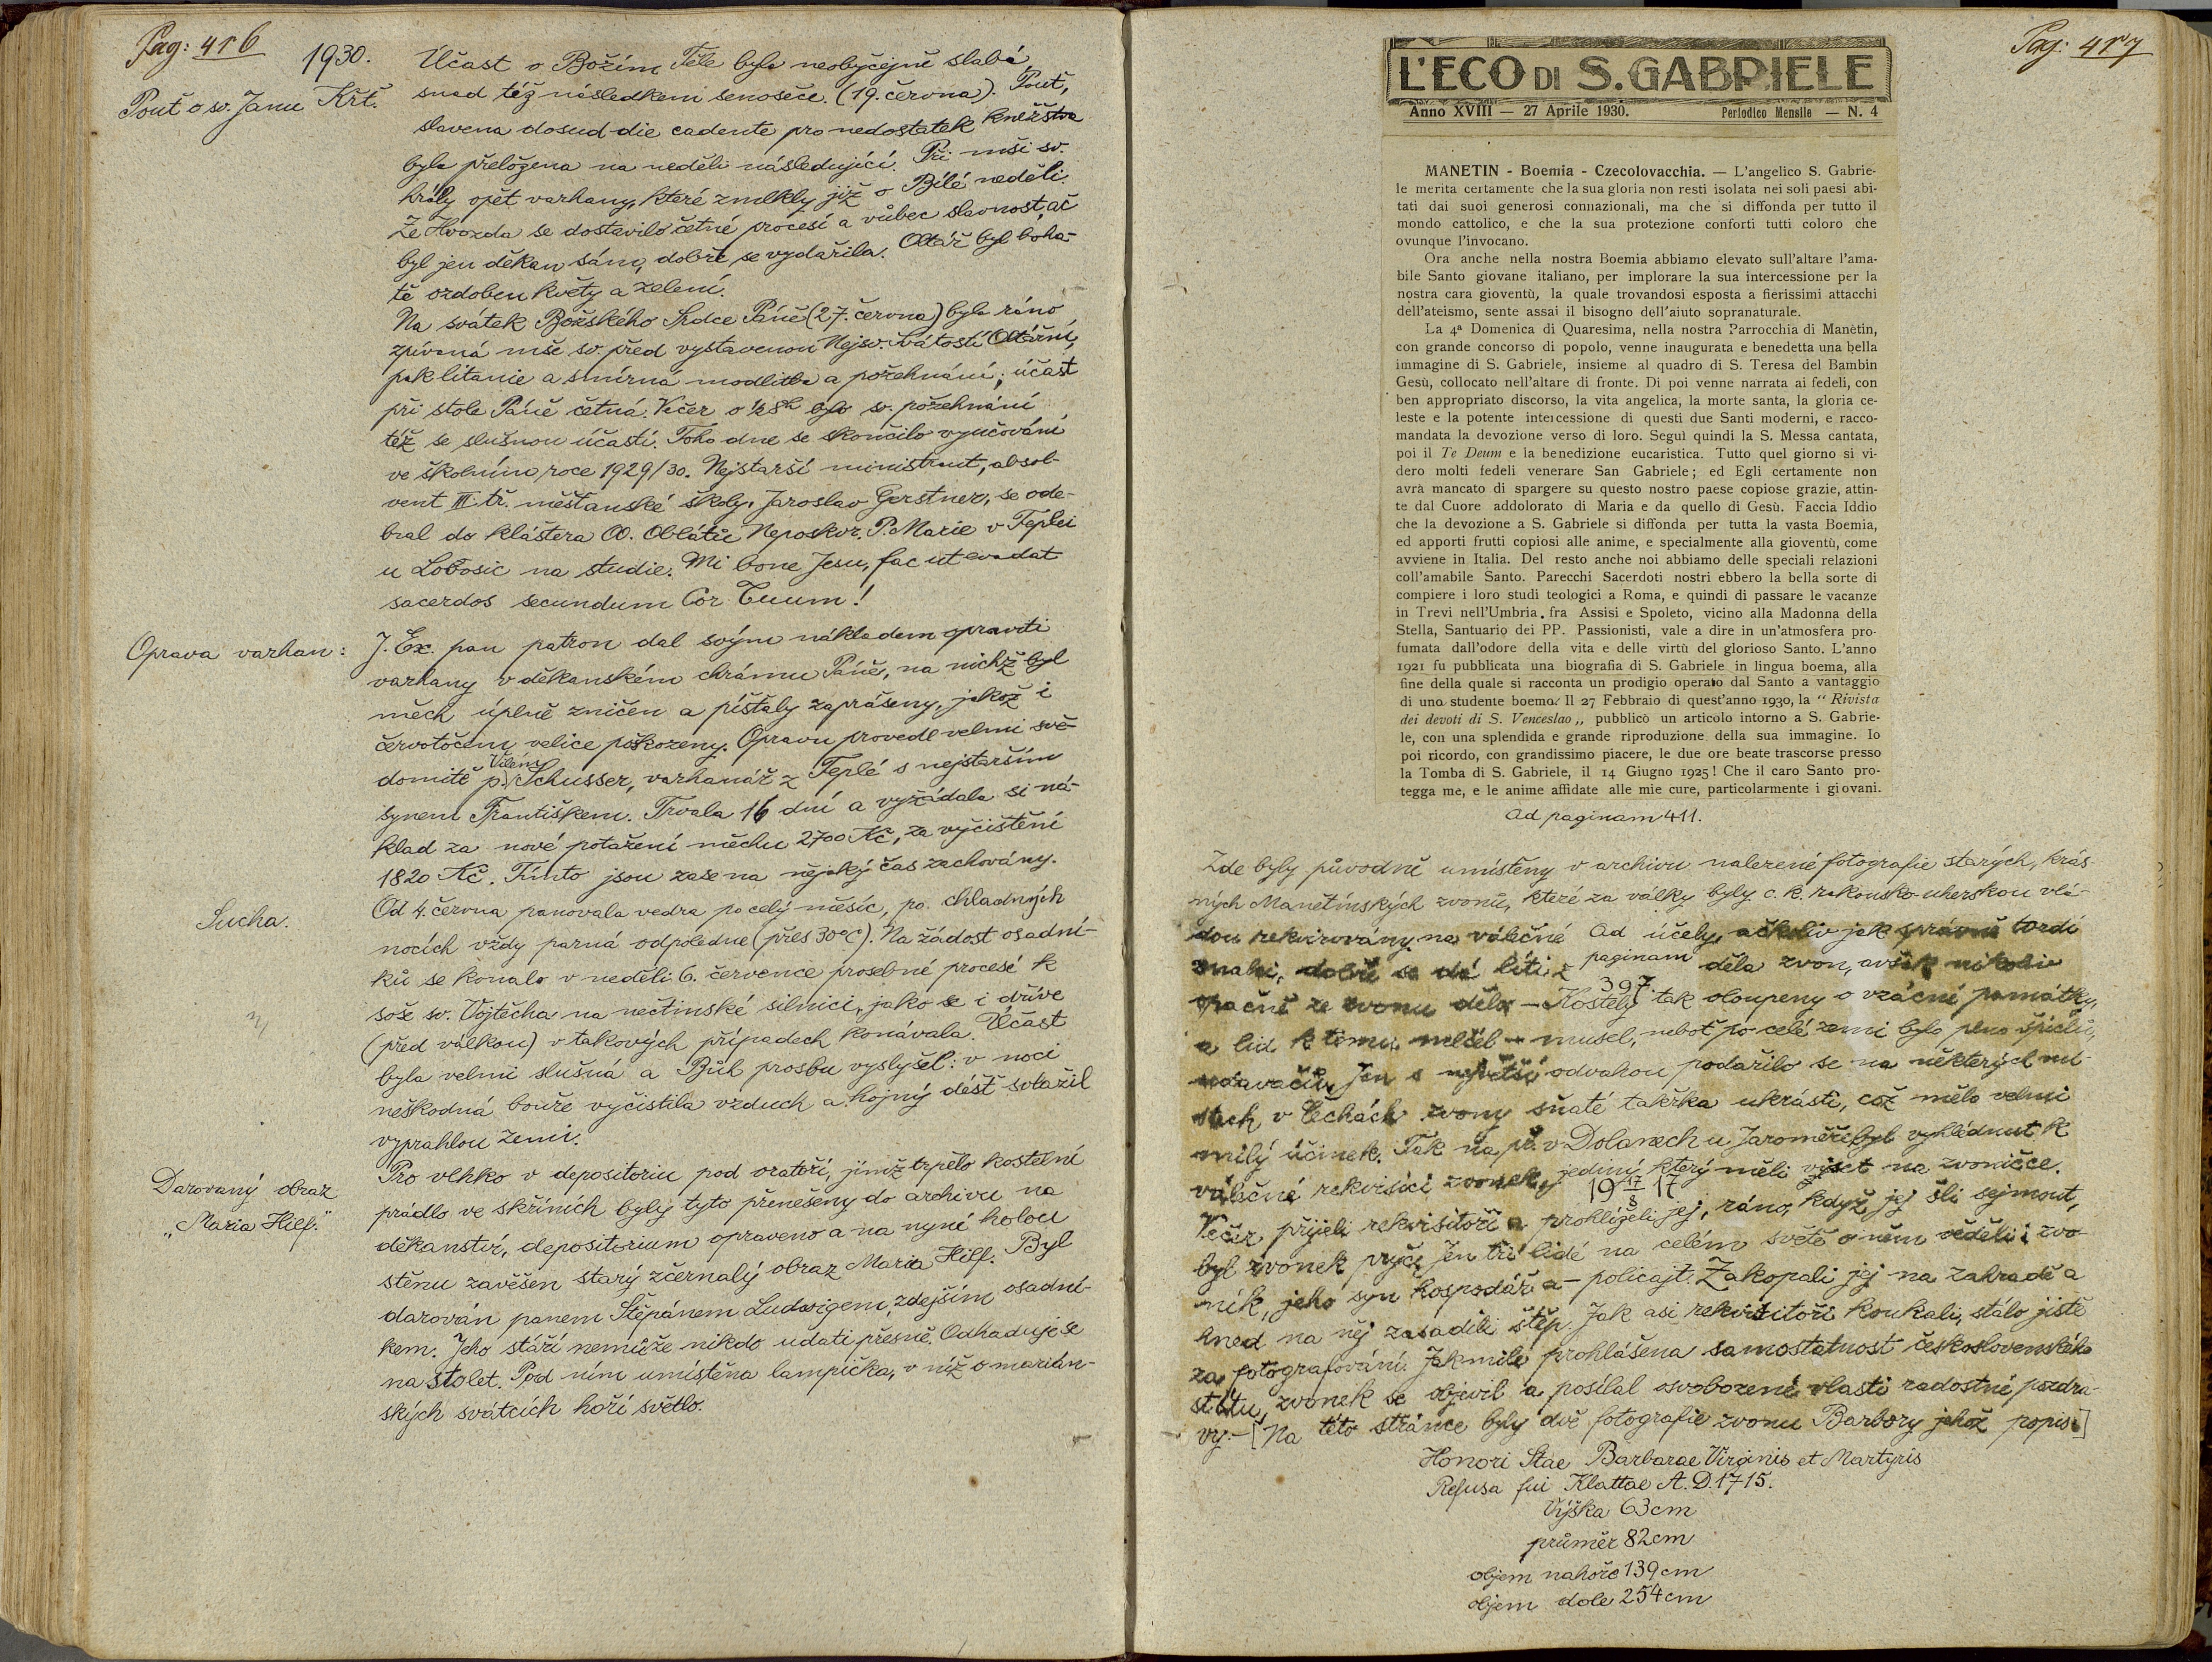 Pag: 416
1930.
Pouť o sv. Janu Křt.
Účast o Božím Těle byla neobyčejně slabá,
snad též následkem senoseče. (19. června). Pouť,
slavena dosud die cadente pro nedostatek kněžstva
byla přeložena na neděli následující. Při mši sv.
hrály opět varhany, které zmlkly již o Bílé neděli.
Ze Hvozda se dostavilo četné procesí a vůbec slavnost, ač
byl jen děkan sám, dobře se vydařila. Oltář byl boha-
tě ozdoben květy a zelení.
Na svátek Božského Srdce Páně (27. června) byla ráno
zpívaná mše sv. před vystavenou Nejsv. Svátostí Oltářní,
pak litanie a smírná modlitba a požehnání; účast
při stole Páně četná. Večer o ½8h bylo sv. požehnání
též se slušnou účastí. Toho dne se skončilo vyučování
ve školním roce 1929/30. Nejstarší ministrant, absol-
vent III. tř. měšťanské školy, Jaroslav Gerstner, se ode-
bral do kláštera OO. Oblátů Neposkvr. P. Marie v Teplei
u Lobosic na studie. Mi bone Jesu, fac ut evadat
sacerdos secundum Cor Tuum!
Oprava varhan:
J. Ex. pan patron dal svým nákladem opraviti
varhany v děkanském chrámu Páně, na nichž byl
měch úplně zničen a píšťaly zaprášeny, jakož i
červotočem velice poškozeny. Opravu provedl velmi svě-
domitě p. Vilém Schusser, varhanář z Teplé s nejstarším
synem Františkem. Trvala 16 dní a vyžádala si ná-
klad za nové potažení měchu 2700 Kč, za vyčištění
1820 Kč. Tímto jsou zase na nějaký čas zachovány.
Sucha.
Od 4. června panovala vedra po celý měsíc, po chladných
nocích vždy parná odpoledne (přes 30°C). Na žádost osadní-
ků se konalo v neděli 6. července prosebné procesí k
soše sv. Vojtěcha na nečtinské silnici, jako se i dříve
(před válkou) v takových případech konávala. Účast
byla velmi slušná a Bůh prosbu vyslyšel: v noci
neškodná bouře vyčistila vzduch a hojný déšť svlažil
vyprahlou zemi.
Darovaný obraz
„Maria Hilf."
Pro vlhko v depositoriu pod oratoří, jímž trpělo kostelní
prádlo ve skříních byly tyto přenešeny do archivu na
děkanství, depositorium opraveno a na nyní holou
stěnu zavěšen starý zčernalý obraz Maria Hilf. Byl
darován panem Štěpánem Ludwigem, zdejším osadní-
kem. Jeho stáří nemůže nikdo udati přesně. Odhaduje se
na sto let. Pod ním umístěna lampička, v níž o marián-
ských svátcích hoří světlo.
Pag: 417
L'ECO DI S. GABRIELE
Anno XVIII — 27 Aprile 1930. Periodico Mensile — N. 4
MANETIN - Boemia - Czecolovacchia. — L'angelico S. Gabrie-
le merita certamente che la sua gloria non resti isolata nei soli paesi abi-
tati dai suoi generosi connazionali, ma che si diffonda per tutto il
mondo cattolico, e che la sua protezione conforti tutti coloro che
ovunque l'invocano.
Ora anche nella nostra Boemia abbiamo elevato sull'altare l'ama-
bile Santo giovane italiano, per implorare la sua intercessione per la
nostra cara gioventù, la quale trovandosi esposta a fierissimi attacchi
dell'ateismo, sente assai il bisogno dell'aiuto sopranaturale.
La 4ª Domenica di Quaresima, nella nostra Parrocchia di Manètin,
con grande concorso di popolo, venne inaugurata e benedetta una bella
immagine di S. Gabriele, insieme al quadro di S. Teresa del Bambin
Gesù, collocato nell'altare di fronte. Di poi venne narrata ai fedeli, con
ben appropriato discorso, la vita angelica, la morte santa, la gloria ce-
leste e la potente intercessione di questi due Santi moderni, e racco-
mandata la devozione verso di loro. Seguì quindi la S. Messa cantata,
poi il Te Deum e la benedizione eucaristica. Tutto quel giorno si vi-
dero molti fedeli venerare San Gabriele; ed Egli certamente non
avrà mancato di spargere su questo nostro paese copiose grazie, attin-
te dal Cuore addolorato di Maria e da quello di Gesù. Faccia Iddio
che la devozione a S. Gabriele si diffonda per tutta la vasta Boemia,
ed apporti frutti copiosi alle anime, e specialmente alla gioventù, come
avviene in Italia. Del resto anche noi abbiamo delle speciali relazioni
coll'amabile Santo. Parecchi Sacerdoti nostri ebbero la bella sorte di
compiere i loro studi teologici a Roma, e quindi di passare le vacanze
in Trevi nell'Umbria, fra Assisi e Spoleto, vicino alla Madonna della
Stella, Santuario dei PP. Passionisti, vale a dire in un'atmosfera pro-
fumata dall'odore della vita e delle virtù del glorioso Santo. L'anno
1921 fu pubblicata una biografia di S. Gabriele in lingua boema, alla
fine della quale si racconta un prodigio operato dal Santo a vantaggio
di uno studente boemo. Il 27 Febbraio di quest'anno 1930, la “ Rivista
dei devoti di S. Venceslao „ pubblicò un articolo intorno a S. Gabrie-
le, con una splendida e grande riproduzione della sua immagine. Io
poi ricordo, con grandissimo piacere, le due ore beate trascorse presso
la Tomba di S. Gabriele, il 14 Giugno 1925! Che il caro Santo pro-
tegga me, e le anime affidate alle mie cure, particolarmente i giovani.
Ad paginam 411.
Zde byly původně umístěny v archivu nalezené fotografie starých, krás-
ných Manětínských zvonů, které za války byly c. k. rakousko-uherskou vlá-
dou rekvirovány na válečné účely, ačkoliv jak správně tvrdí
Ad paginam 397.
Snahi, dobře se dá líti z děla zvon, avšak nikoliv
opačně ze zvonu děla – Kostely tak oloupeny o vzácné památky,
a lid k tomu mlčel – musel, neboť po celé zemi bylo plno špiclů,
udavačů. Jen s největší odvahou podařilo se na některých mí-
stech v Čechách zvony sňaté takřka ukrásti, což mělo velmi
milý účinek. Tak na př. v Dolanech u Jaroměře byl vyhlédnut k
válečné rekvisici zvonek, jediný, který měli viset na zvoničce.
19 17/8 17
Večer přijeli rekvisitoři a prohlíželi jej, ráno, když jej šli sejmout,
byl zvonek pryč. Jen tři lidé na celém světě o něm věděli: zvo-
ník, jeho syn hospodář a – policajt. Zakopali jej na zahradě a
hned na něj zasadili štěp. Jak asi rekvisitoři koukali, stálo jistě
za fotografování. Jakmile prohlášena samostatnost československého
státu, zvonek se objevil a posílal osvobozené vlasti radostné pozdra-
vy. – [Na této stránce byly dvě fotografie zvonu Barbory jehož popis:]
Honori Stae Barbarae Virginis et Martyris
Refusa fui Klattae A. D. 1715.
Výška 63 cm
průměr 82 cm
objem nahoře 139 cm
objem dole 254 cm